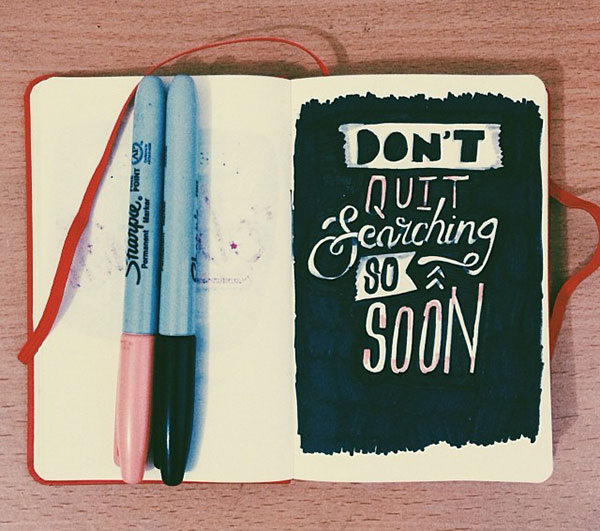 DON'T
QUIT
Searching
SO
SOON
Sharpie®
Permanent Marker
POINT